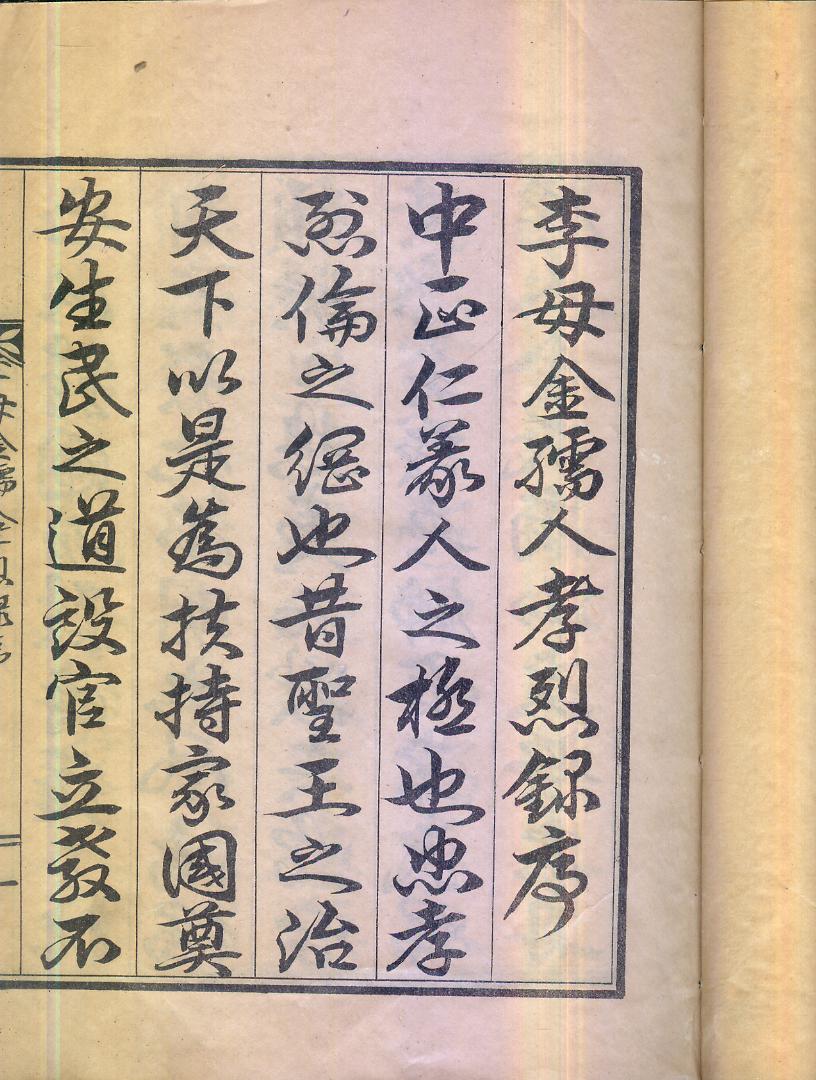 李母金孺人孝烈錄序
中正仁義人之極也忠孝
烈倫之綱也昔聖王之治
天下以是為扶持家國奠
安生民之道設官立教不
母金孺人